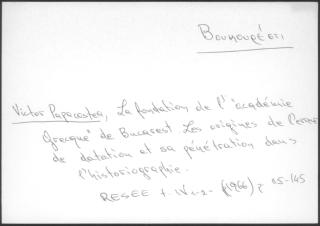 Βουκουρέστι
Victor Papacostea, La fondation de l'académie
grecque de Bucarest. Les origines de l'erreur
de datation et sa pénétration dans
l'historiographie.
RESEE t. IV 1-2 (1966)